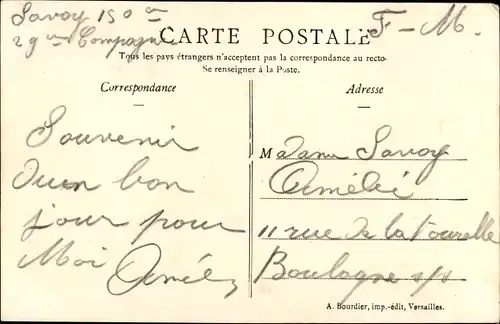 Savoy 150 e
29 e Compagnie
F - M.
CARTE POSTALE
Tous les pays étrangers n'acceptent pas la correspondance au recto-
Se renseigner à la Poste.
Correspondance
Adresse
Souvenir
Dun bon
jour pour
Moi
Madame Savoy
Amélie
11 rue de la tourelle
Boulogne s/s
A. Bourdier, imp.-édit, Versailles.